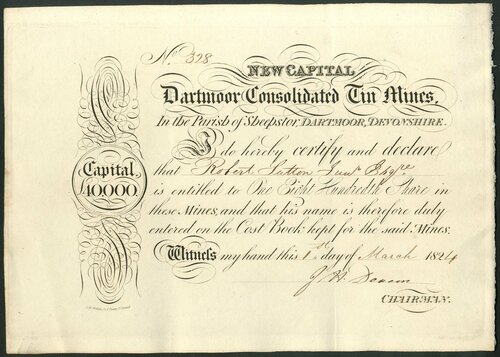 No. 328
NEW CAPITAL
Dartmoor Consolidated Tin Mines,
In the Parish of Sheepstor, DARTMOOR, DEVONSHIRE.
I do hereby certify and declare
that Robert Sutton Junr Esqre
is entitled to One Eight Hundredth Share in
these Mines, and that his name is therefore duly
entered on the Cost Book kept for the said Mines.
Witness my hand this 1st day of March 1824
CHAIRMAN.
Capital
£40000.